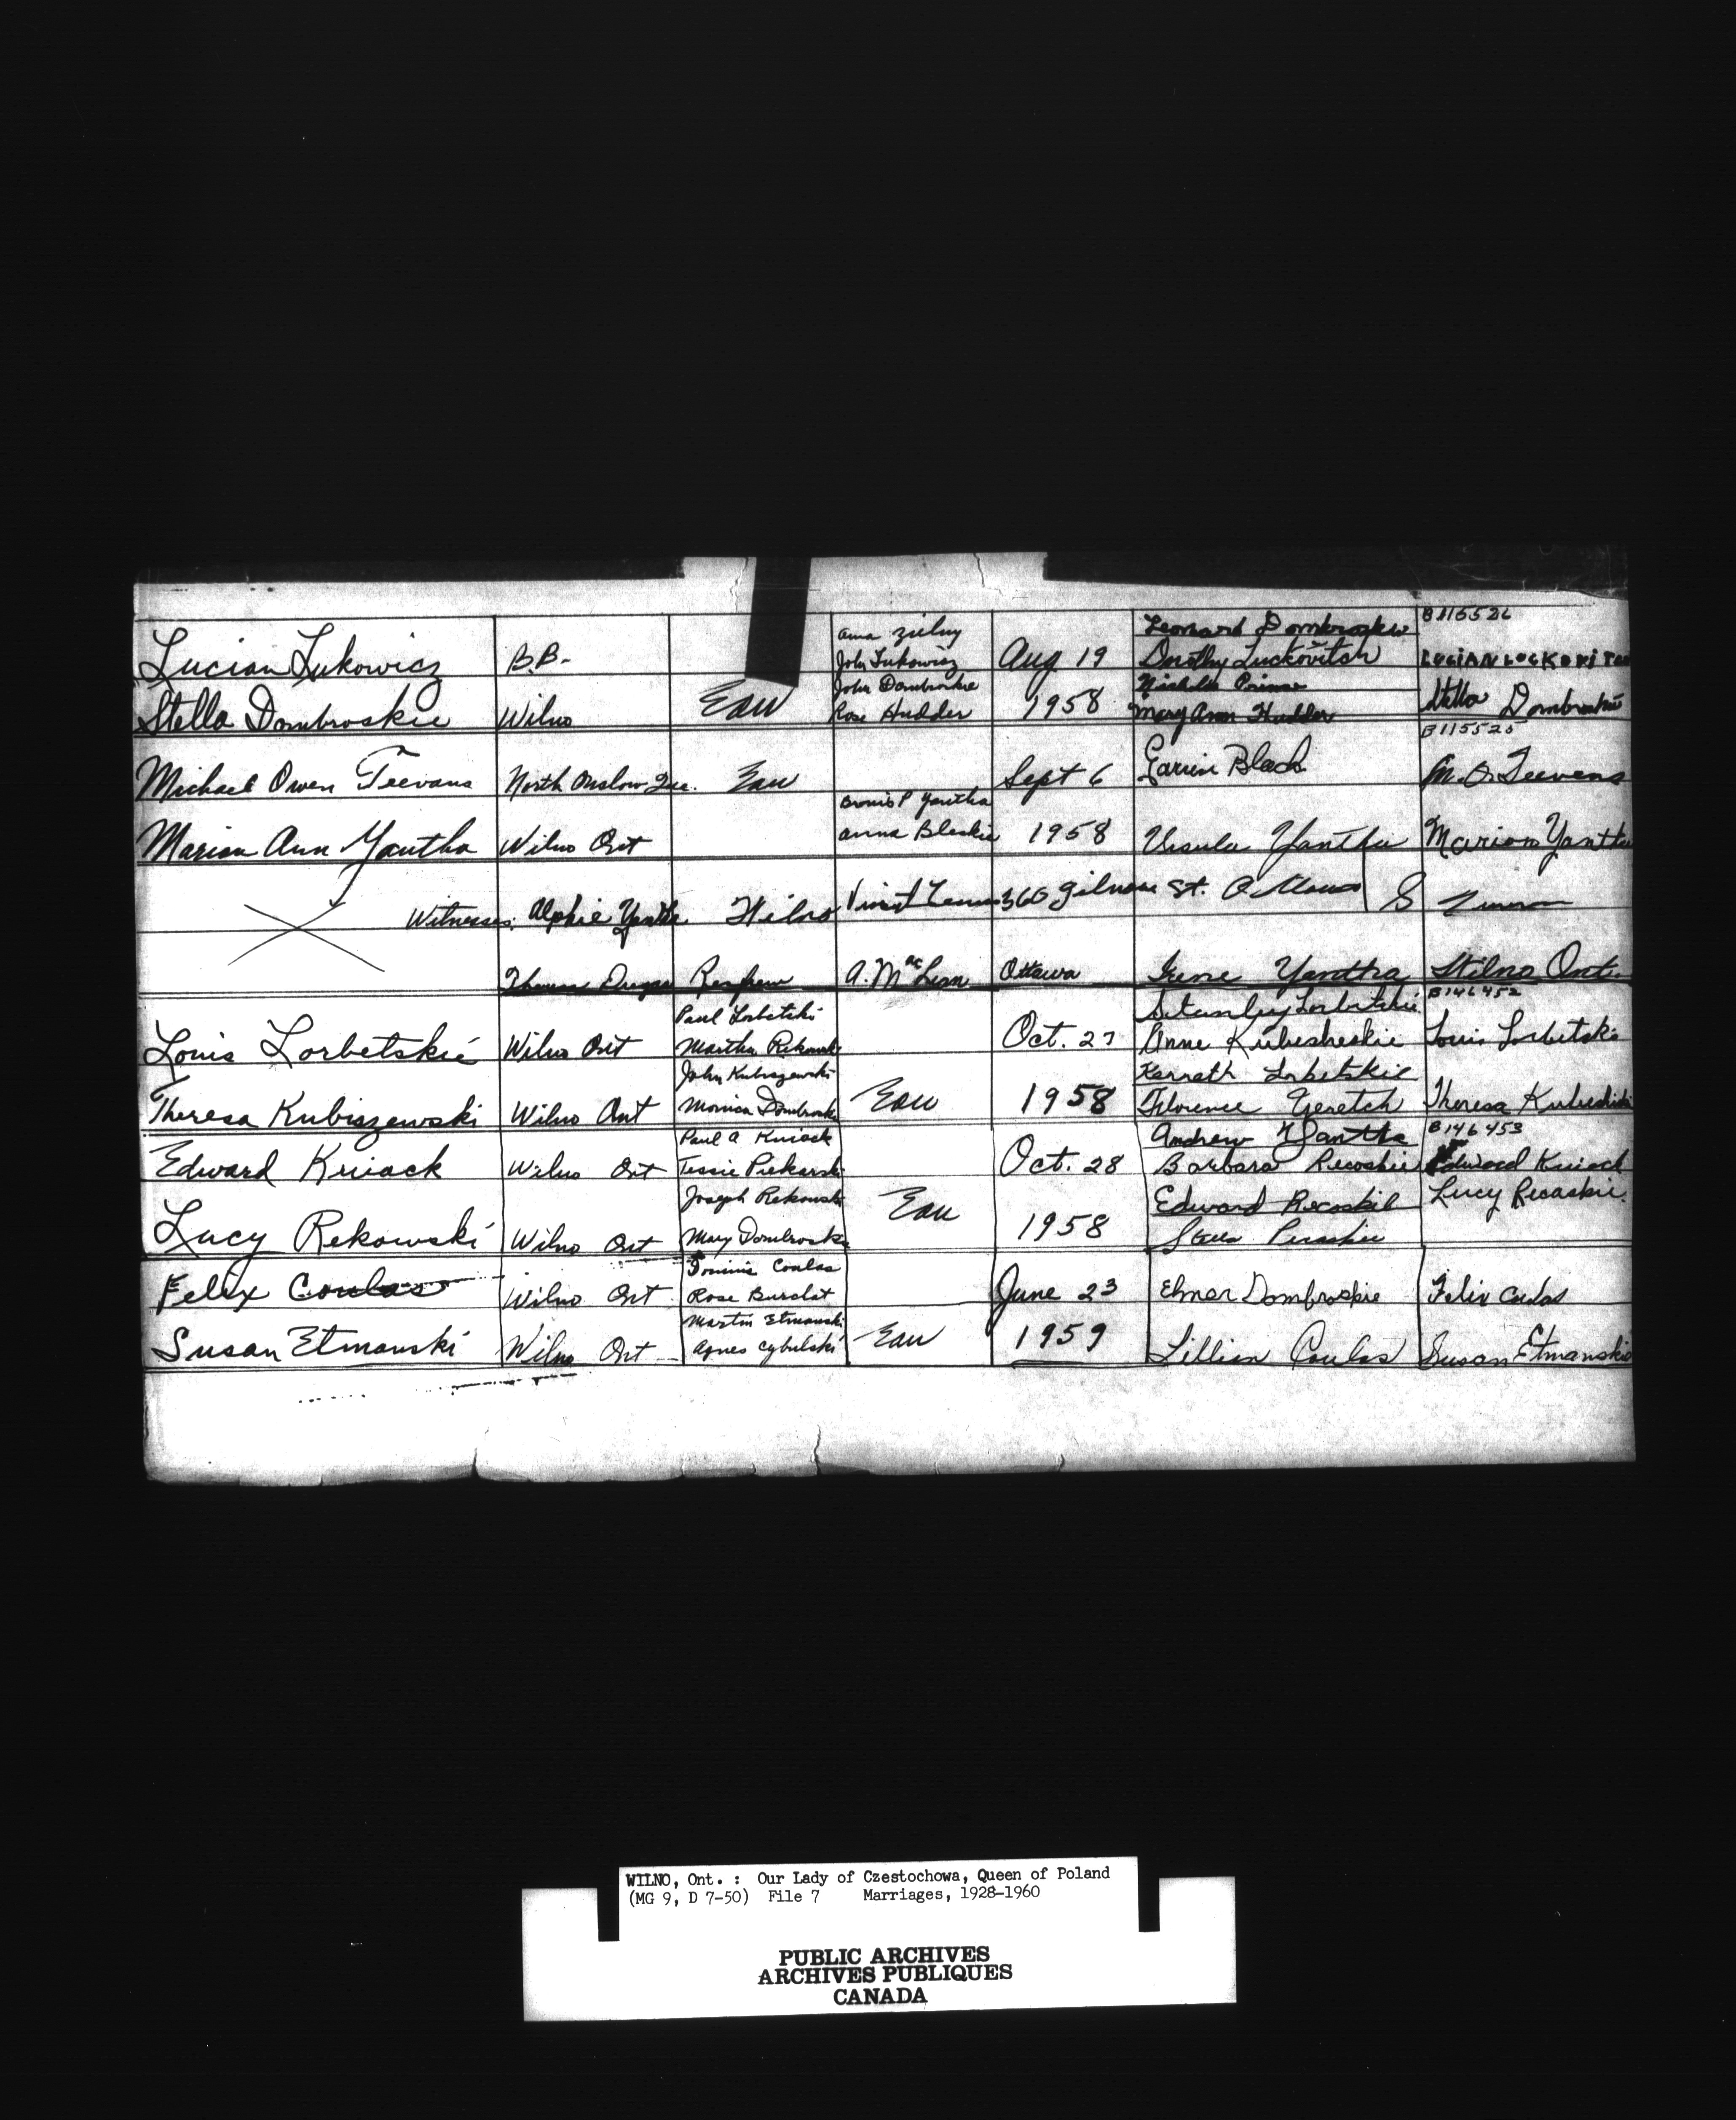 B115526
Anna Zielny Leonard Dombroskie
Lucian Lukowicz B.B. John Lukowicz Aug 19 Dorothy Luckovitch LUCIAN LUCKOVITCH
John Dombroskie
Stella Dombroskie Wilno Eau Rose Hudder 1958 Mary Ann Hudder Stella Dombroskie
B115525
Michael Owen Teevans North Onslow Que. Eau Sept 6 M. O. Teevens
Yantha
Marion Ann Yantha Wilno Ont Anna Bleskie 1958 Ursula Yantha Marion Yantha
Witnesses: Alphie Yantha Wilno 360 Gilmour St. Ottawa
Renfrew A. McLean Ottawa Irene Yantha Wilno Ont.
B146452
Paul Lorbetski Stanley Lorbetskie
Louis Lorbetskie Wilno Ont Martha Rekowski Oct. 27 Anne Kubesheskie Louis Lorbetski
John Kubiszewski Kenneth Lorbetskie
Theresa Kubiszewski Wilno Ont Monica Dombroski Eau 1958 Florence Theresa
B146453
Paul A Kuiack Andrew Yantha
Edward Kuiack Wilno Ont Tessie Piekarski Oct. 28 Barbara Recoskie Edward Kuiack
Joseph Rekowski Eau Edward Recoskie Lucy Recoskie
Lucy Rekowski Wilno Ont Mary Dombroski 1958
Dominic Coulas
Felix Coulas Wilno Ont Rose Burchat June 23 Elmer Dombroskie Felix Culas
Martin Etmanski
Susan Etmanski Wilno Ont Agnes Cybulski Eau 1959 Lillian Coulas Susan Etmanskie
WILNO, Ont. : Our Lady of Czestochowa, Queen of Poland
(MG 9, D 7-50) File 7 Marriages, 1928-1960
PUBLIC ARCHIVES
ARCHIVES PUBLIQUES
CANADA